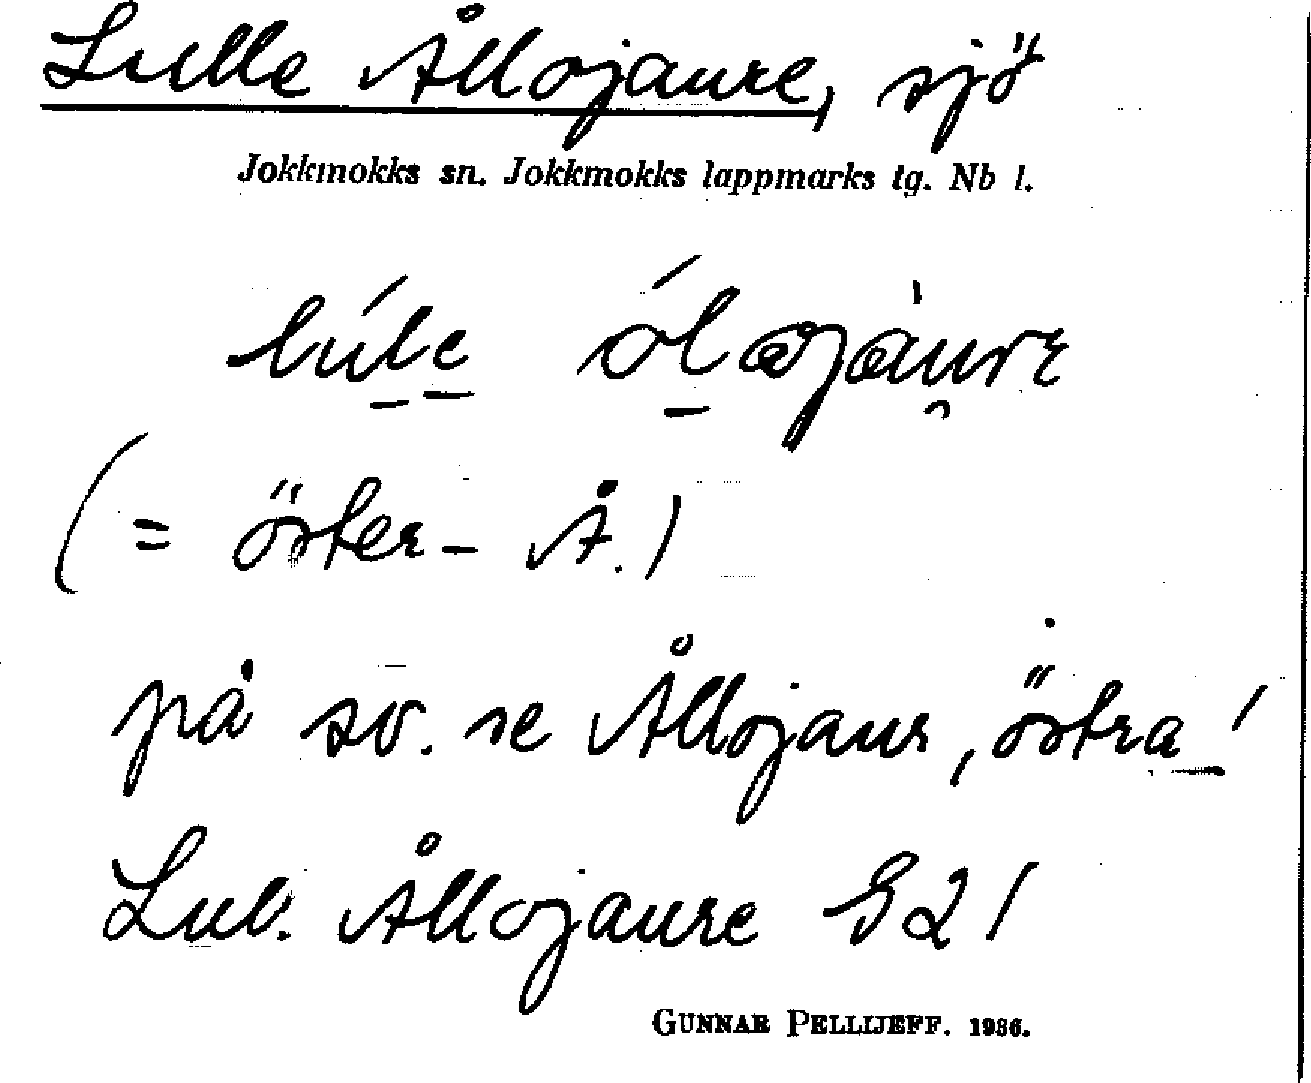 Lulle Ållojaure, sjö
Jokkmokks sn. Jokkmokks lappmarks tg. Nb l.
(= öster- Å.)
på sv. se Ållojaur, östra!
Lul. Ållojaure
GUNNAR PELLIJEFF. 1936.